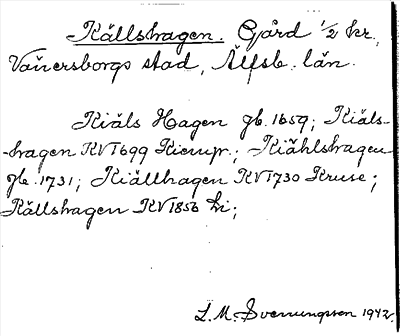 Källshagen. Gård 1/2 kr,
Vänersborgs stad, Älfsb. län.
Kiäls Hagen jb. 1659; Kiäls-
-hagen KVI 1699 Kiempe.; Kiählshagen
jb. 1731; Kiällhagen KVI 1730 Kruse;
Källshagen KV 1856 hi;
L. M. Svenungsson 1942.